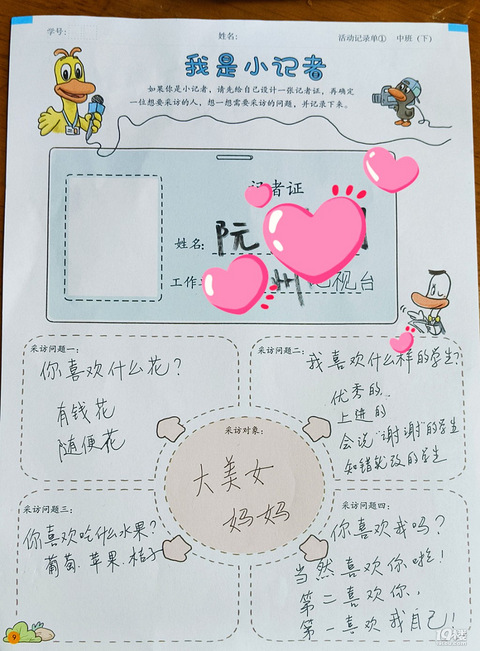 学号:
姓名:
活动记录单① 中班（下）
我是小记者
如果你是小记者，请先给自己设计一张记者证，再确定
一位想要采访的人，想一想需要采访的问题，并记录下来。
记者证
姓名: 阮
工作
州 视台
采访问题一:
你喜欢什么花？
有钱花
随便花
采访问题二:
我喜欢什么样的学生？
优秀的
上进的
会说“谢谢”的学生
知错就改的学生
采访对象:
大美女
妈妈
采访问题三:
你喜欢吃什么水果？
葡萄.苹果.桔子
采访问题四:
你喜欢我吗？
当然喜欢你啦！
第二喜欢你，
第一喜欢我自己！
9